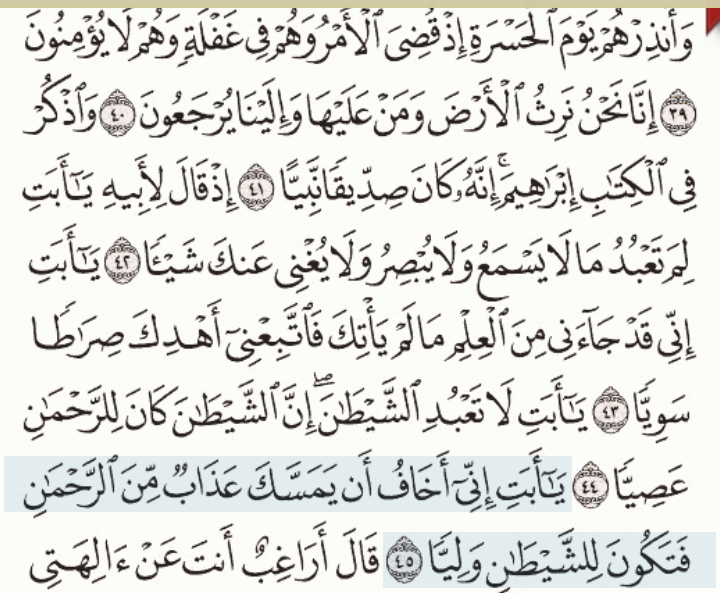 وَأَنذِرْهُمْ يَوْمَ ٱلْحَسْرَةِ إِذْ قُضِىَ ٱلْأَمْرُ وَهُمْ فِى غَفْلَةٍ وَهُمْ لَا يُؤْمِنُونَ
٣٩ إِنَّا نَحْنُ نَرِثُ ٱلْأَرْضَ وَمَنْ عَلَيْهَا وَإِلَيْنَا يُرْجَعُونَ ٤٠ وَٱذْكُرْ
فِى ٱلْكِتَٰبِ إِبْرَٰهِيمَ ۚ إِنَّهُۥ كَانَ صِدِّيقًا نَّبِيًّا ٤١ إِذْ قَالَ لِأَبِيهِ يَٰٓأَبَتِ
لِمَ تَعْبُدُ مَا لَا يَسْمَعُ وَلَا يُبْصِرُ وَلَا يُغْنِى عَنكَ شَيْـًٔا ٤٢ يَٰٓأَبَتِ
إِنِّى قَدْ جَآءَنِى مِنَ ٱلْعِلْمِ مَا لَمْ يَأْتِكَ فَٱتَّبِعْنِىٓ أَهْدِكَ صِرَٰطًا
سَوِيًّا ٤٣ يَٰٓأَبَتِ لَا تَعْبُدِ ٱلشَّيْطَٰنَ ۖ إِنَّ ٱلشَّيْطَٰنَ كَانَ لِلرَّحْمَٰنِ
عَصِيًّا ٤٤ يَٰٓأَبَتِ إِنِّىٓ أَخَافُ أَن يَمَسَّكَ عَذَابٌ مِّنَ ٱلرَّحْمَٰنِ
فَتَكُونَ لِلشَّيْطَٰنِ وَلِيًّا ٤٥ قَالَ أَرَاغِبٌ أَنتَ عَنْ ءَالِهَتِى